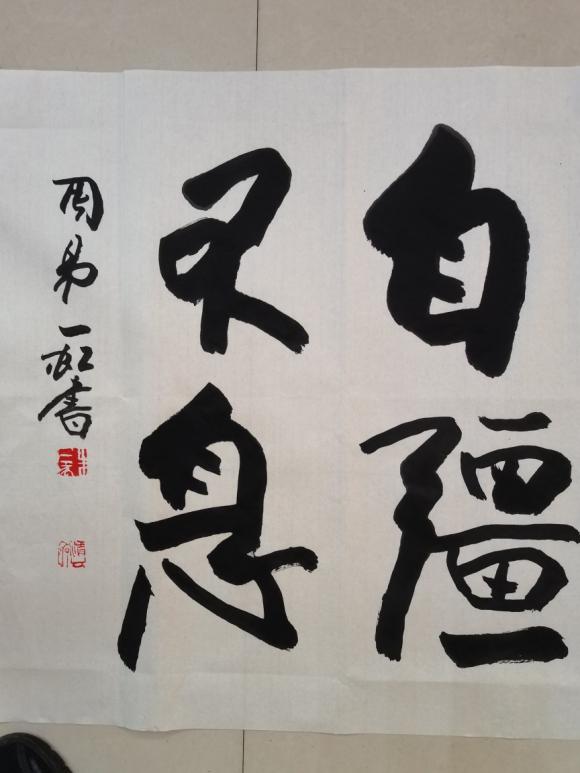 自彊
不息
周易 一 書